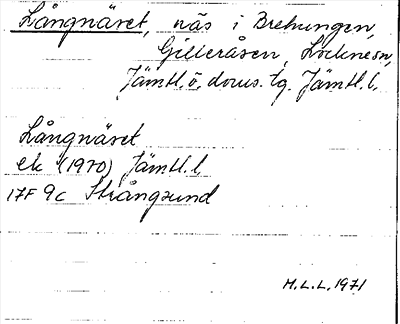 Långnäset, näs i Brehungen,
Gilleråsen, Lockne sn,
Jämtl. ö. doms. tg. Jämtl. l.
Långnäset
ek (1970) Jämtl. l.
17F 9c Strångsund
M.L.L. 1971